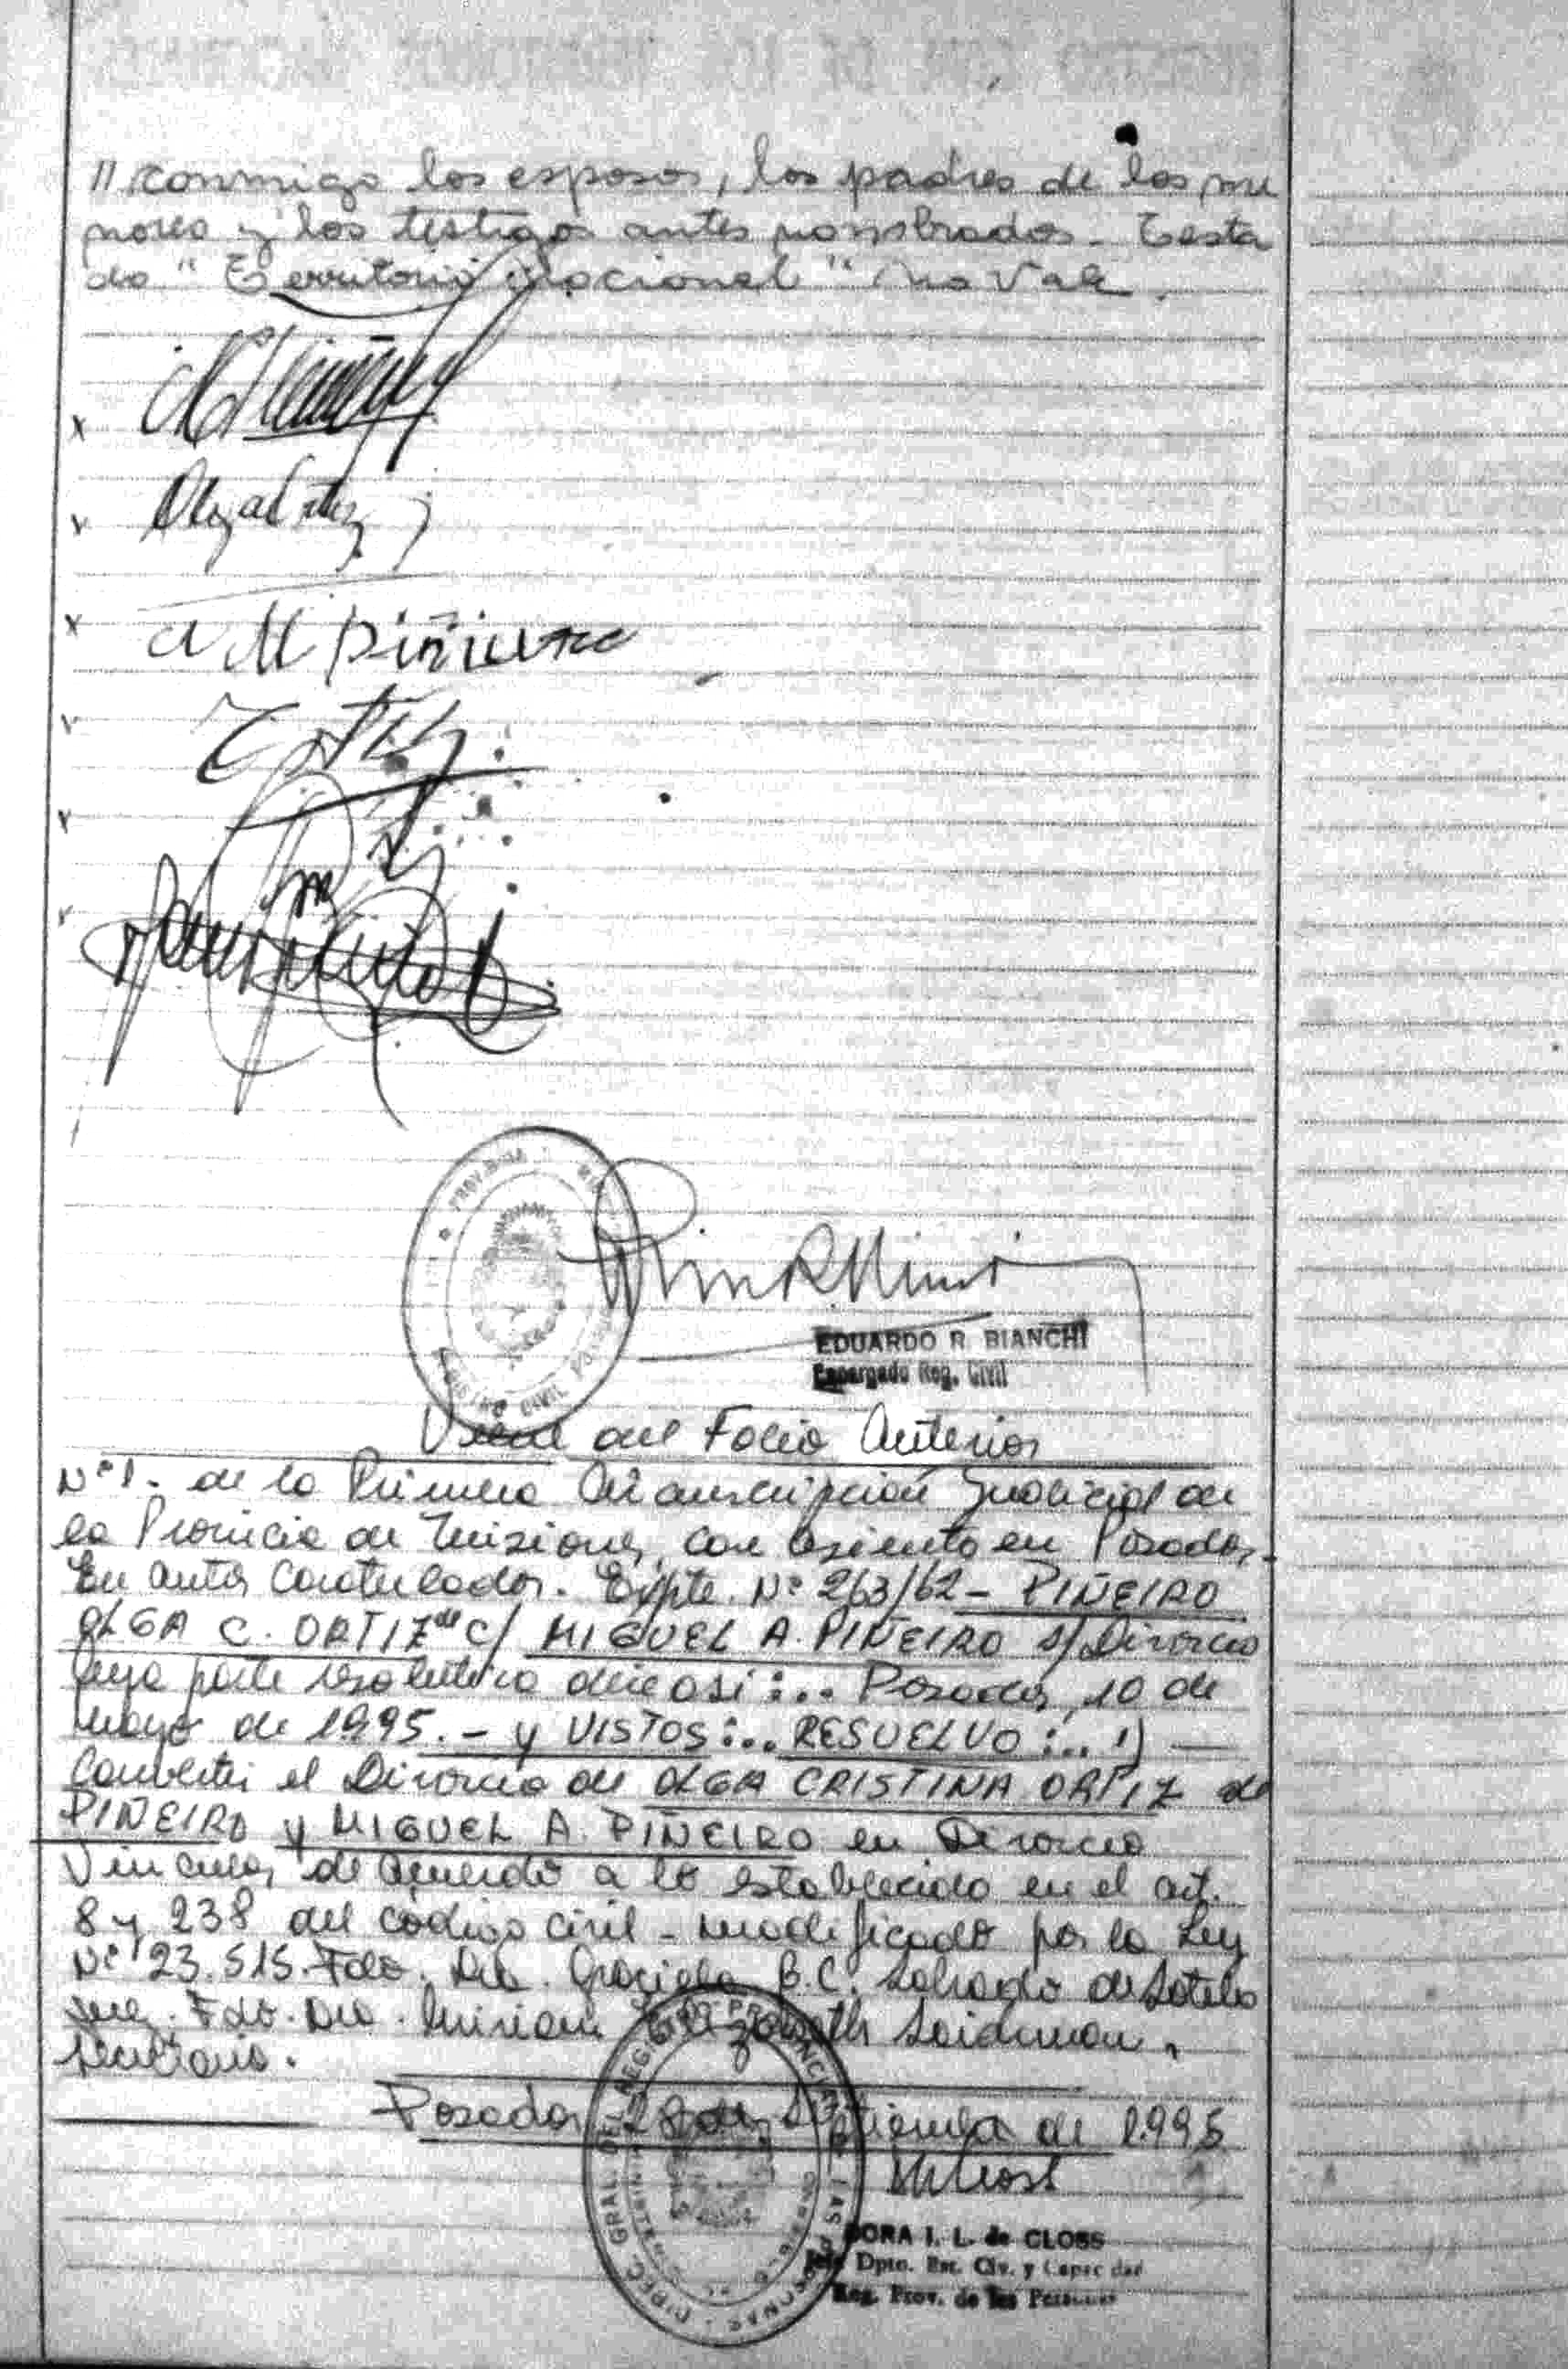 // conmigo los esposos, los padres de los me
nores y los testigos antes nombrados - Testa
do "Territorio Nacional" No Vale.
Olga Ortiz
M Piñeiro
EDUARDO R. BIANCHI
Encargado Reg. Civil
del Folio Anterior
Nº 1. de la Primera Circunscripción Judicial de
la Provincia de Misiones, con asiento en Posadas.
En autos Caratulados. Expte. Nº 263/62 - PIÑEIRO
OLGA C. ORTIZ de C/ MIGUEL A. PIÑEIRO S/ Divorcio
cuya parte resolutiva dice así:.. Posadas, 10 de
mayo de 1.995. - y VISTOS:.. RESUELVO:.. 1) —
Convertir el Divorcio de OLGA CRISTINA ORTIZ de
PIÑEIRO y MIGUEL A. PIÑEIRO en Divorcio
Vincular, de acuerdo a lo establecido en el art.
8 y 238 del código civil - modificado por la Ley
Nº 23.515. Fdo. Dra. Graciela B.C. Salgado de Sotelo
Juez. Fdo. Dra. Miriam Saidman,
Secretaria.
Posadas, 28 de Septiembre de 1.995
DORA I. L. de CLOSS
Jefe Dpto. Est. Civ. y Capacidad
Reg. Prov. de las Personas